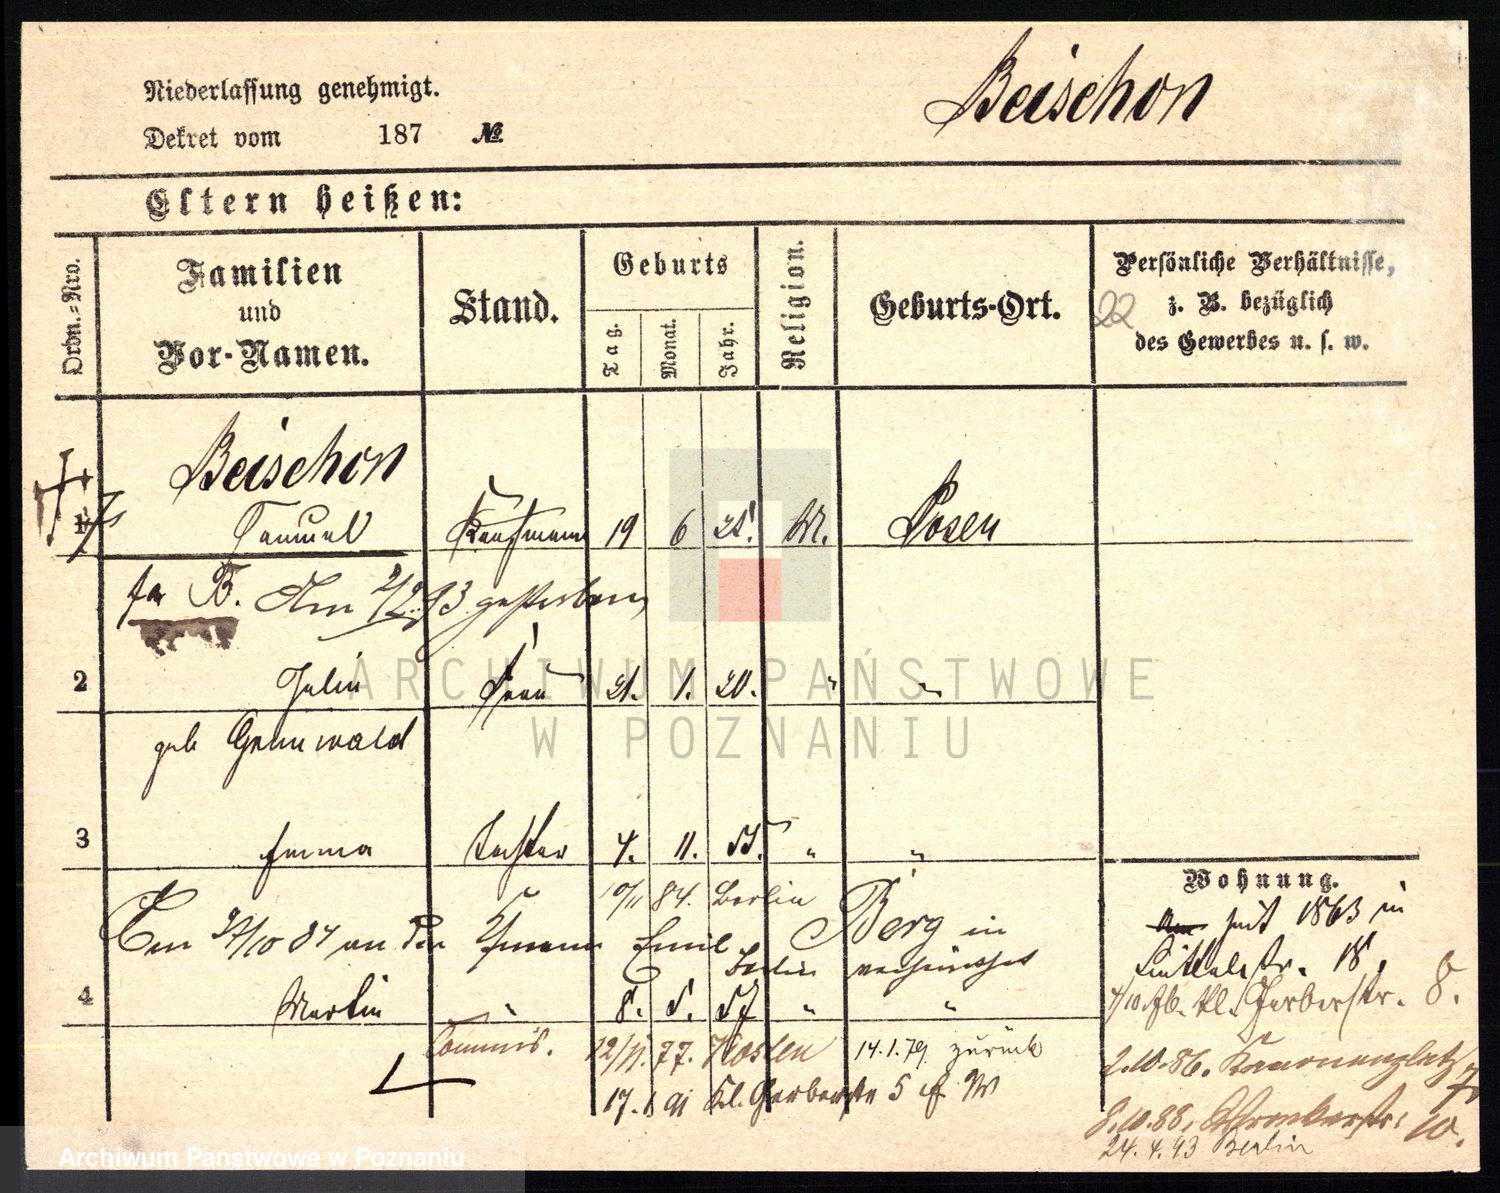 Niederlassung genehmigt.
Beischon
Dekret vom 187 №
Eltern heißen:
Ordn.=Nro.
Familien und Vor-Namen.
Stand.
Geburts
Tag.
Monat.
Jahr.
Religion.
Geburts-Ort.
Persönliche Verhältnisse, z. B. bezüglich des Gewerbes u. s. w.
22
Beischon
1 Samuel Kaufmann 19 6 21. M. Posen
B. Am 2/2.93 gestorben
2 Julie Frau 21. 1. 20. " "
geb Grunwald
3 Emma Tochter 4. 11. 55. " "
84. Berlin
an den Emil Berg in
Berlin
4 Martin " 8. 5. 57 " "
Commis. 12/11. 77. Kosten 14.1.79 zurück
17. 91 Kl. Gerberstr 5
Wohnung.
seit 1863 in
18.
Kl. Gerberstr. 8.
2.10.86. Kanonenplatz
8.10.88. 10.
24.4.93 Berlin
ARCHIWUM PAŃSTWOWE
W POZNANIU
Archiwum Państwowe w Poznaniu